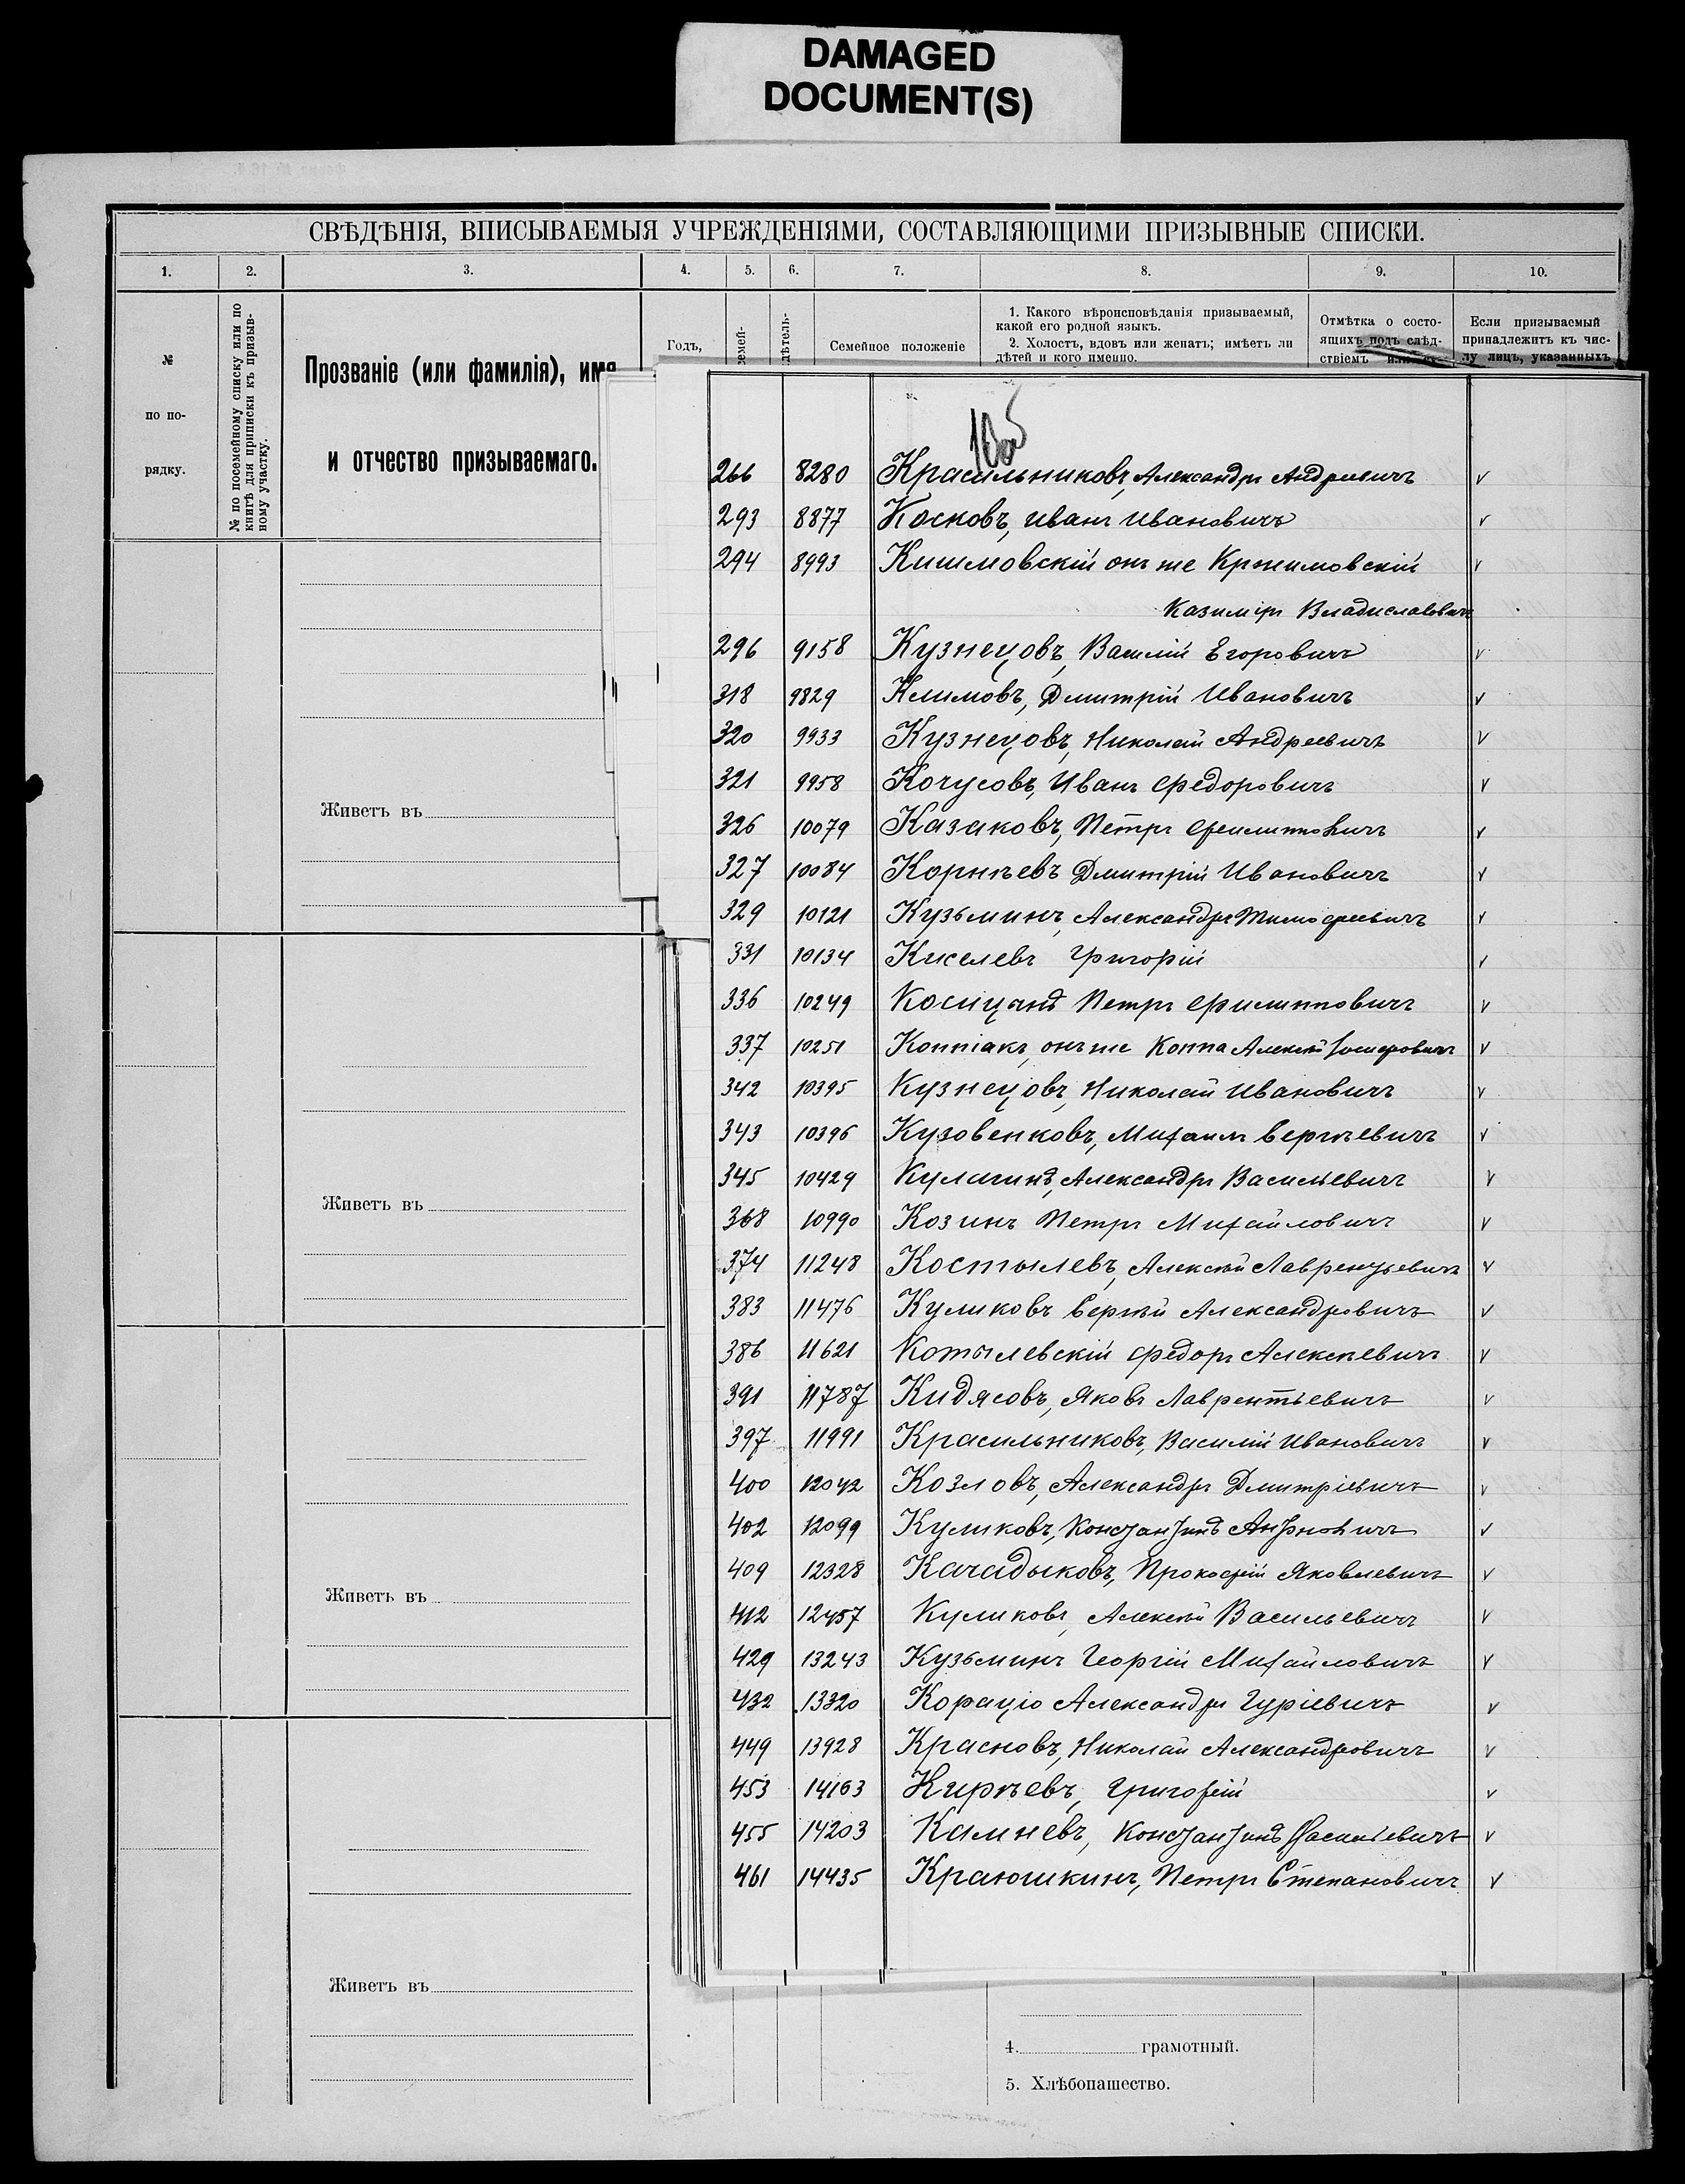 DAMAGED
DOCUMENT(S)
СВѢДѢНІЯ, ВПИСЫВАЕМЫЯ УЧРЕЖДЕНІЯМИ, СОСТАВЛЯЮЩИМИ ПРИЗЫВНЫЕ СПИСКИ.
1. 2. 3. 4. 5. 6. 7. 8. 9. 10.
№
по по-
рядку.
№ по посемейному списку или по
книгѣ для приписки къ призыв-
ному участку.
Прозваніе (или фамилія), имя
и отчество призываемаго.
Годъ,
семей-
дѣтель-
Семейное положеніе
1. Какого вѣроисповѣданія призываемый,
какой его родной языкъ.
2. Холостъ, вдовъ или женатъ; имѣетъ ли
дѣтей и кого именно.
Отмѣтка о состо-
ящихъ подъ слѣд-
ствіемъ или
Если призываемый
принадлежитъ къ чис-
лу лицъ, указанныхъ
266 8280 Красильниковъ, Александръ Андреевичъ v
293 8877 Косковъ, Иванъ Ивановичъ v
294 8993 Кишмовскій онъ же Кржимовскій v
Казиміръ Владиславовичъ
296 9158 Кузнецовъ, Василій Егоровичъ v
318 9829 Климовъ, Дмитрій Ивановичъ v
320 9933 Кузнецовъ, Николай Андреевичъ v
321 9958 Кочусовъ, Иванъ Федоровичъ v
326 10079 Казаковъ, Петръ Филипповичъ v
327 10084 Корнѣевъ Дмитрій Ивановичъ v
329 10121 Кузьминъ, Александръ Тимофеевичъ v
331 10134 Киселевъ Григорій v
336 10249 Косицанъ Петръ Филипповичъ v
337 10251 Коппіакъ, онъ же Коппа Алексѣй Іосифовичъ v
342 10395 Кузнецовъ, Николай Ивановичъ v
343 10396 Кузовенковъ, Михаилъ Сергѣевичъ v
345 10429 Кулагинъ, Александръ Васильевичъ v
368 10990 Козинъ Петръ Михайловичъ v
374 11248 Костылевъ, Алексѣй Лаврентьевичъ v
383 11476 Куликовъ Сергѣй Александровичъ v
386 11621 Котылевскій Федоръ Алексѣевичъ v
391 11787 Кидясовъ, Яковъ Лаврентьевичъ v
397 11991 Красильниковъ, Василій Ивановичъ v
400 12042 Козловъ, Александръ Дмитріевичъ v
402 12099 Куликовъ, Константинъ Антоновичъ v
409 12328 Качадыковъ, Прокофій Яковлевичъ v
412 12457 Куликовъ, Алексѣй Васильевичъ v
429 13243 Кузьминъ Георгій Михайловичъ v
432 13320 Корацію Александръ Гуріевичъ v
449 13928 Красновъ, Николай Александровичъ v
453 14163 Кирѣевъ, Григорій v
455 14203 Камневъ, Константинъ Васильевичъ v
461 14435 Краюшкинъ, Петръ Степановичъ v
Живетъ въ
Живетъ въ
Живетъ въ
Живетъ въ
4. грамотный.
5. Хлѣбопашество.